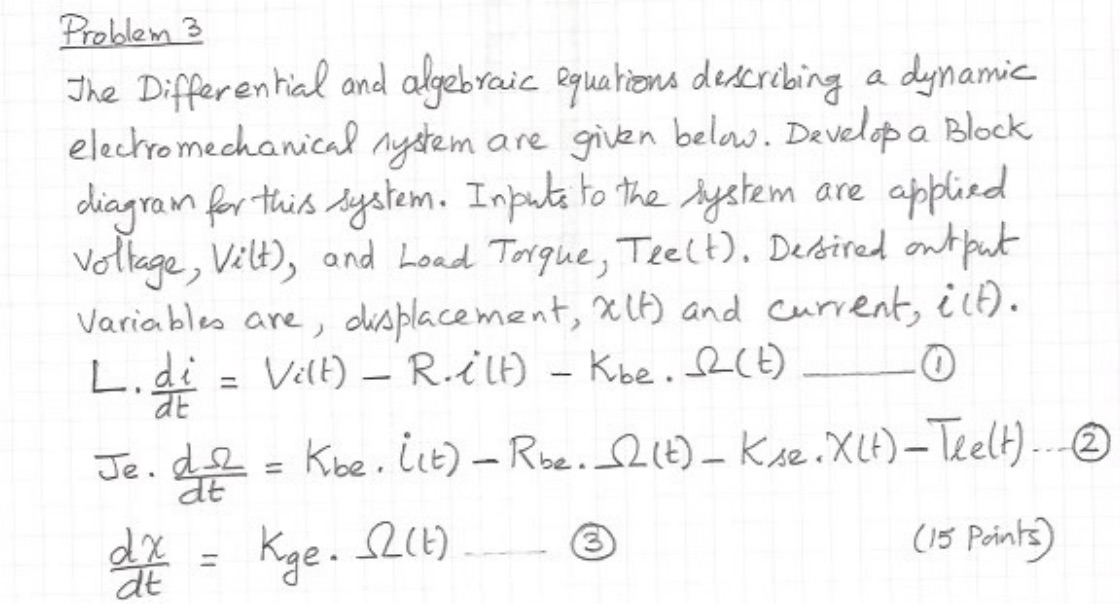 Problem 3
The Differential and algebraic equations describing a dynamic
electromechanical system are given below. Develop a Block
diagram for this system. Inputs to the system are applied
voltage, Vi(t), and Load Torque, Tee(t). Desired output
variables are, displacement, x(t) and current, i(t).
L. di/dt = Vi(t) – R.i(t) – Kbe. Ω(t) —— ①
Je. dΩ/dt = Kbe. i(t) – Rbe. Ω(t) – Kse. X(t) – Tee(t) --- ②
dx/dt = Kge. Ω(t) ------ ③ (15 Points)